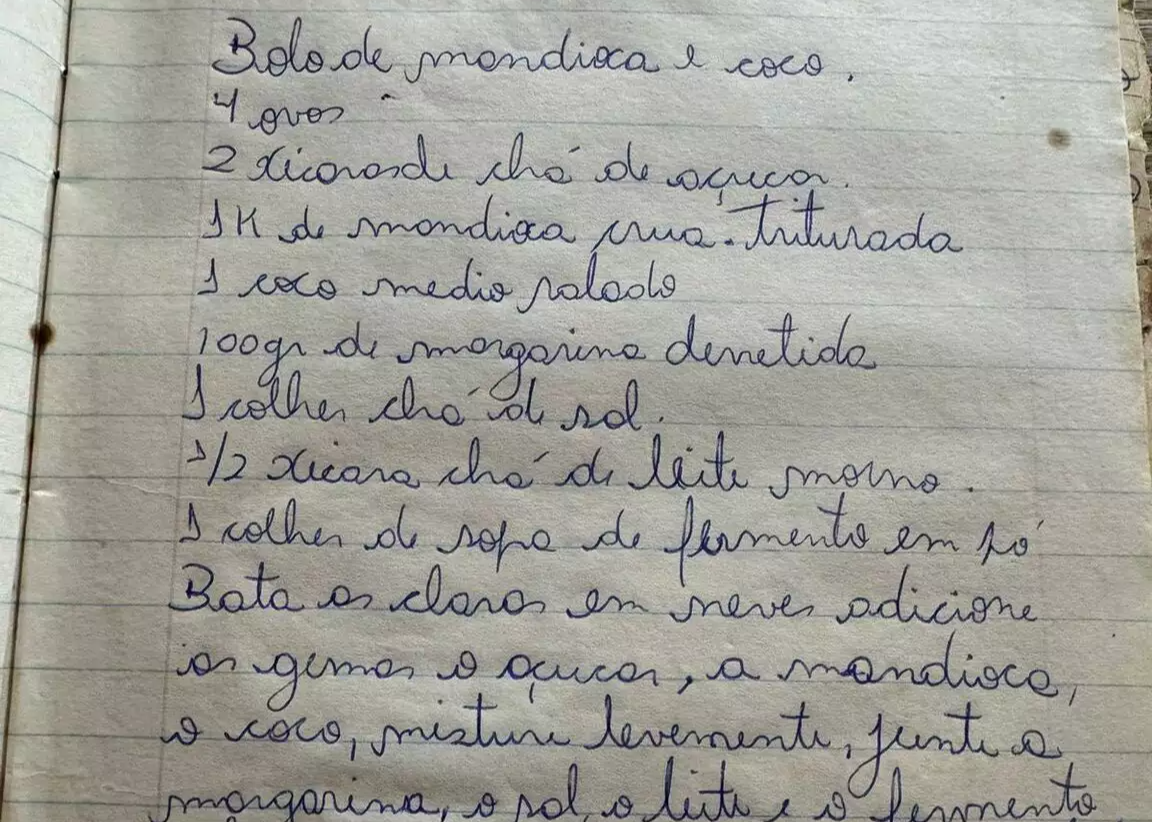 Bolo de mandioca e coco.
4 ovos
2 xicaras de chá de açucar.
1K de mandioca crua. triturada
1 coco medio ralado
100gr de margarina derretida
1 colher chá de sal.
1/2 xicara chá de leite morno.
1 colher de sopa de fermento em pó
Bata as claras em neves adicione
as gemas o açucar, a mandioca,
o coco, misture levemente, junte a
margarina, o sal, o leite e o fermento